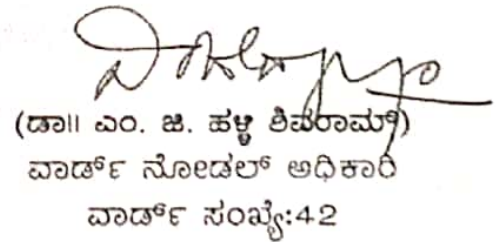 (ಡಾ|| ಎಂ. ಜಿ. ಹಳ್ಳಿ ಶಿವರಾಮ್)
ವಾರ್ಡ್ ನೋಡಲ್ ಅಧಿಕಾರಿ
ವಾರ್ಡ್ ಸಂಖ್ಯೆ:42